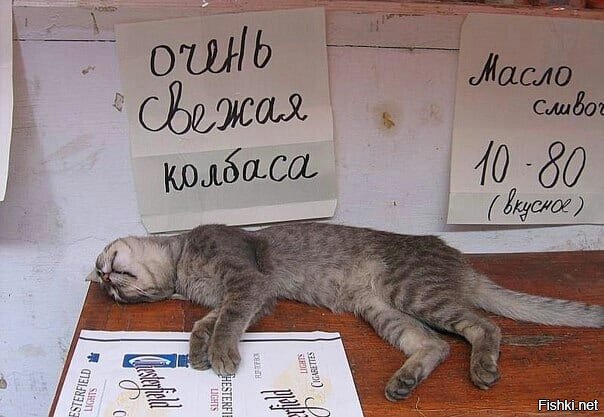 очень
свежая
колбаса
Масло
сливоч
10-80
(вкусное)
CHESTERFIELD
LIGHTS
Chesterfield
CHESTERFIELD
LIGHTS
CIGARETTES
LIGHTS
Fishki.net